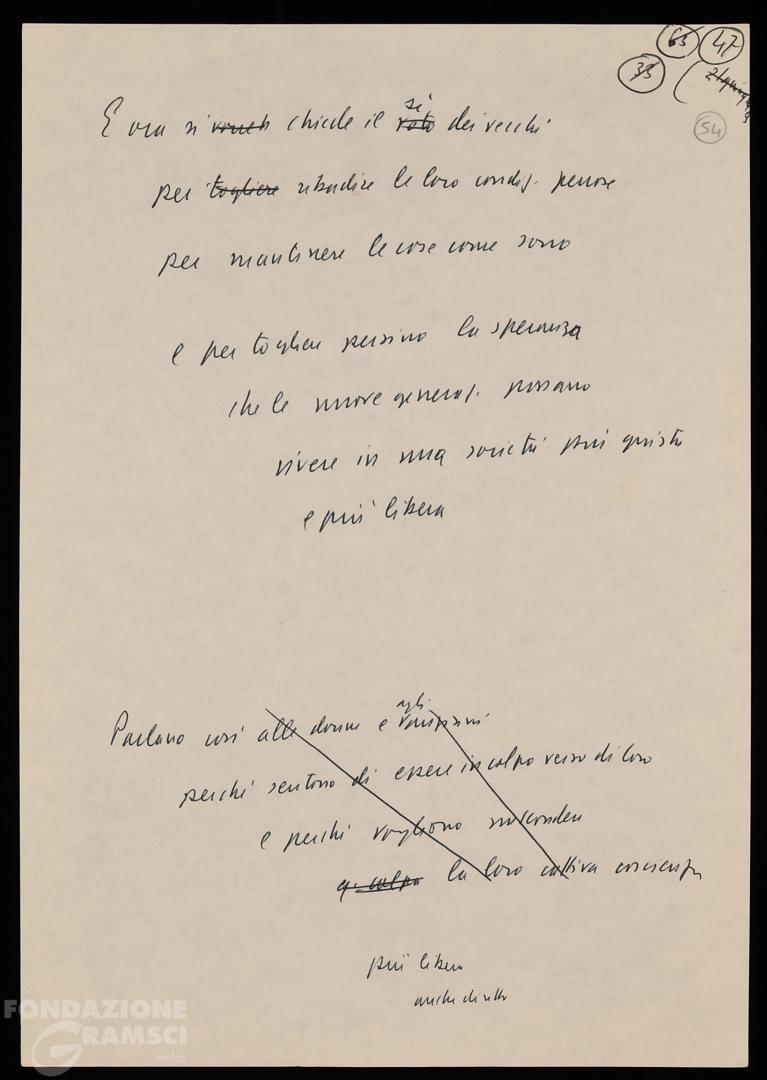 63 47
33
54
E ora si chiede il sì dei vecchi
per togliere ribadire le loro condiz. penose
per mantenere le cose come sono
e per togliere persino la speranza
che le nuove generaz. possano
vivere in una società più giusta
e più libera
Parlano così alle donne e agli
perché sentono di essere in colpa verso di loro
e perché vogliono nascondere
la loro cattiva coscienza
più libera
FONDAZIONE
GRAMSCI
onlus